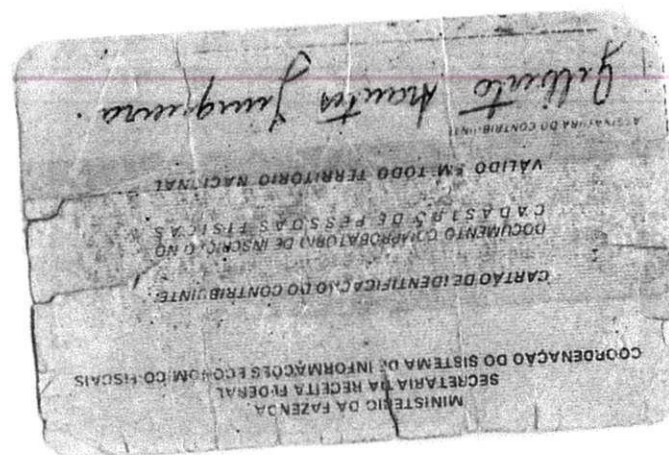 MINISTÉRIO DA FAZENDA
SECRETARIA DA RECEITA FEDERAL
COORDENAÇÃO DO SISTEMA DE INFORMAÇÕES ECONOMICO-FISCAIS
CARTÃO DE IDENTIFICAÇÃO DO CONTRIBUINTE
DOCUMENTO COMPROBATÓRIO DE INSCRIÇÃO NO
CADASTRO DE PESSOAS FÍSICAS
VÁLIDO EM TODO TERRITÓRIO NACIONAL
ASSINATURA DO CONTRIBUINTE
Gilberto Arantes Junqueira